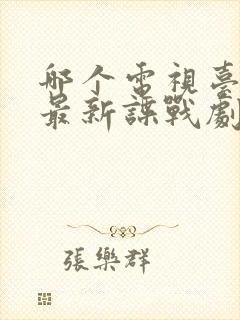 哪个電視臺
最新諜戰劇
張樂群